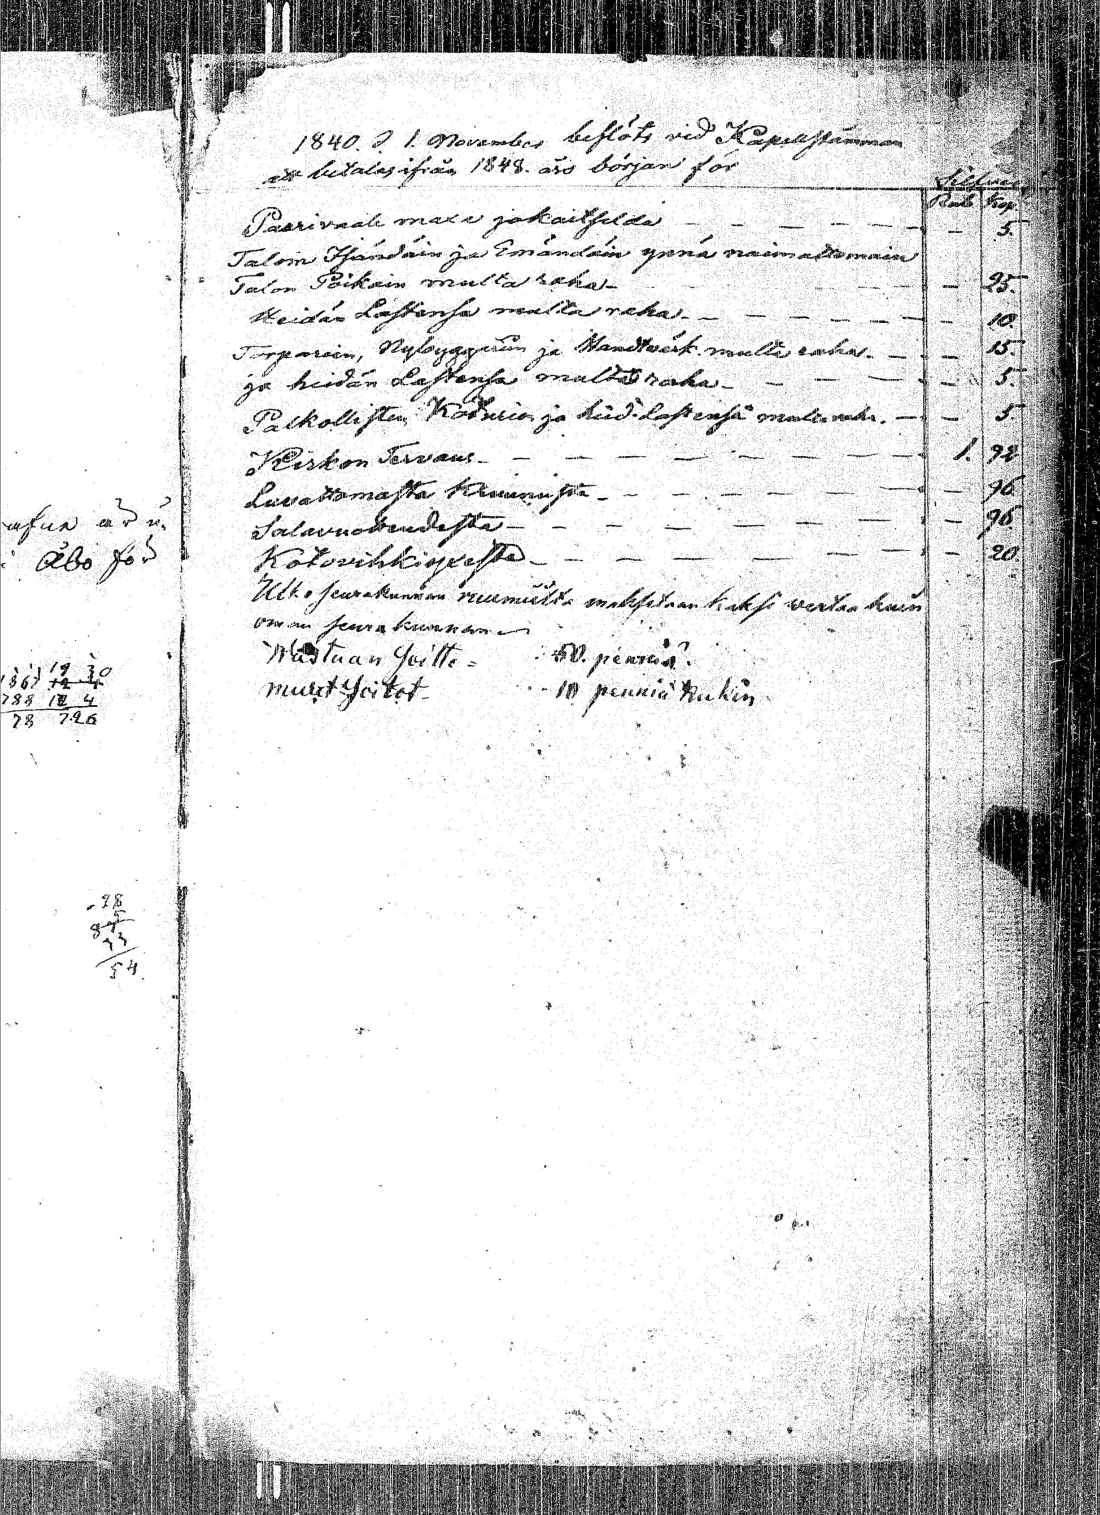 1840. d. 1. November beslöts vid Kapellstämman
att betalas ifrån 1848. års början för
Silfver
Rub. Kop.
Paarivaate maxa jokaitselda — — 5.
Taloin Isändäin ja Emändäin ynnä naimattomain
Talon Poikain multa raha — — 25.
Heidän Lastensa multa raha — — 10.
Torparein, Nybyggarein ja Handtwerk. multa raha. — — 15.
ja heidän Lastensa multa raha — — 5.
Palkollisten, ja heid. Lastensa multa raha. — — 5
Kirkon Tervaus — — 1. 92
Luvattomasta Kruunusta — — 96.
Salavuoteudesta — — 96.
Kotovihkiyxestä — — 20.
Ulko seurakunnan ruumiista maksetaan kaksi vertaa kuin
oman seurakunnan
Soitto = 50. penniä.
muut Soitot - 10 penniä kukin
Åbo för
19 30
1867 12 4
788 12 4
78 726
28
54